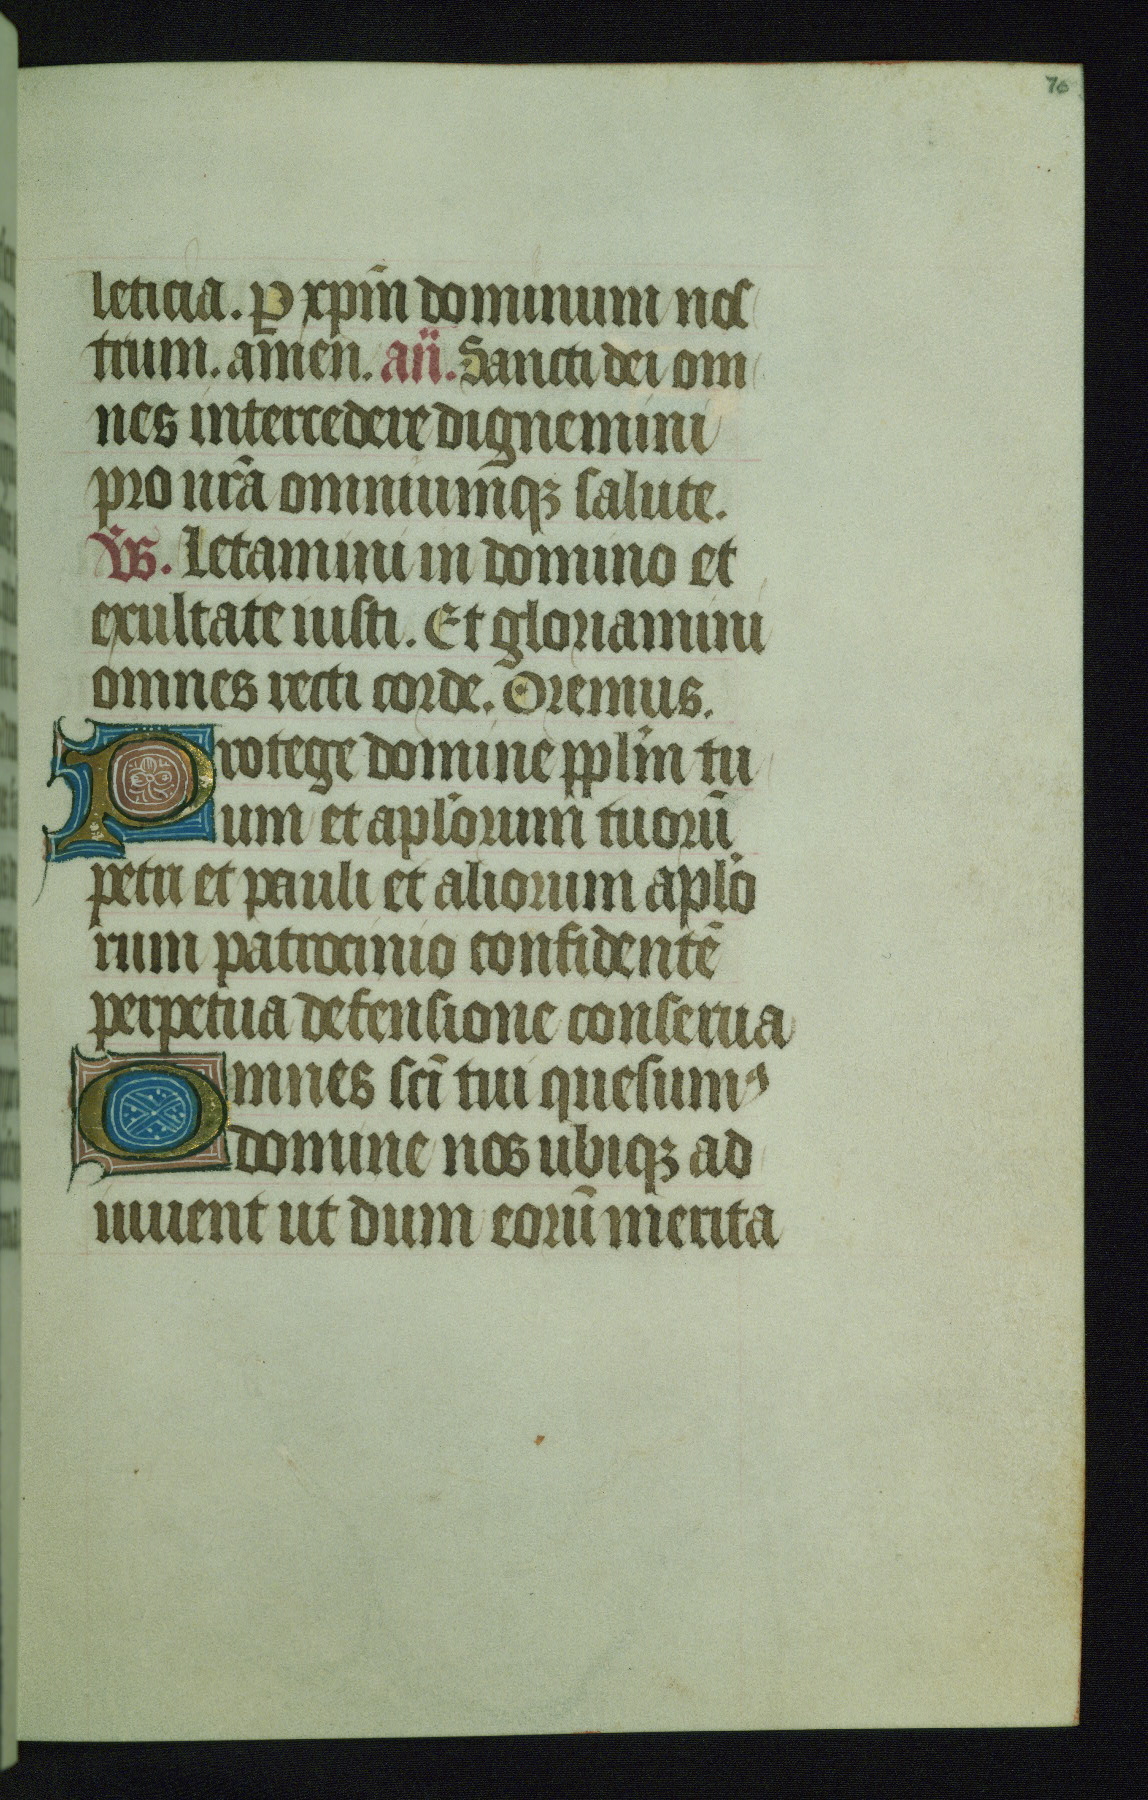 76
leticia. ꝑ xpm̄ dominum nos
trum. am̄en. an̄. Sancti dei om
nes intercedere dignemini
pro nr̄a omniumqꝫ salute.
Vs̄. Letamini in domino et
exultate iusti. Et gloriamini
omnes recti corde. Oremus.
Protege domine ppl̄m tu
um et apl̄orum tuorū
petri et pauli et aliorum apl̄o
rum patrocinio confidentē
perpetua defensione conserua
Omnes sc̄i tui quesumꝰ
domine nos ubiqꝫ ad
iuuent ut dum eorū merita